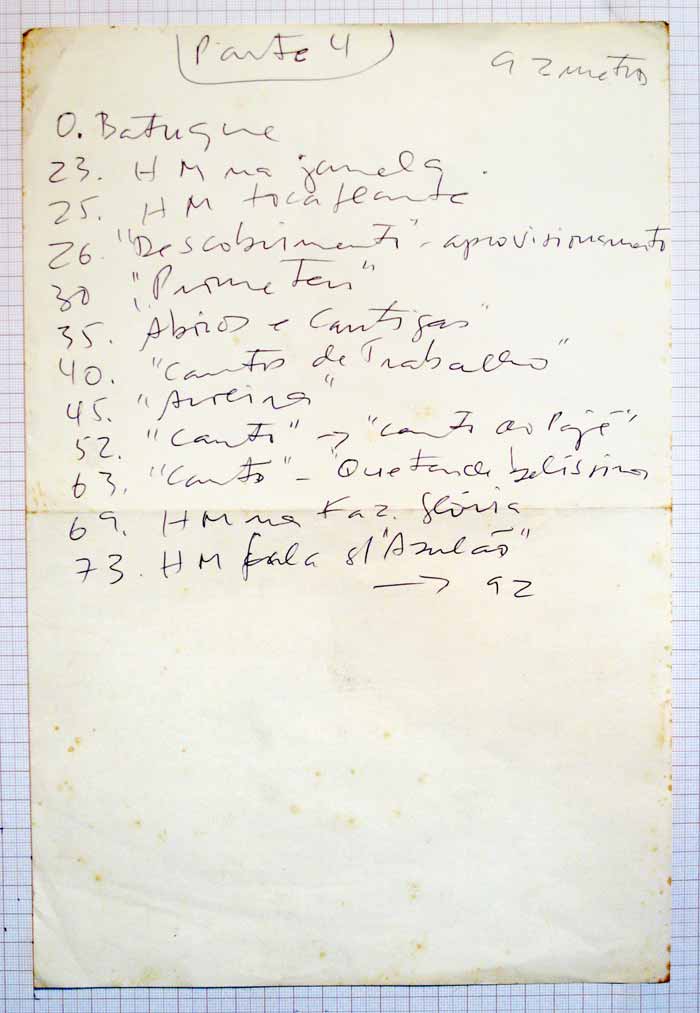 Parte 4
92 metros
0. Batuque
23. HM na janela.
25. HM toca flauta
26. "Descobrimento" - aprovisionamento
30 "Prometeu"
35. Aboios e Cantigas"
40. "Cantos de Trabalho"
45. "
52. "Canto" → "Canto do Pajé"
63. "Canto" - "Que tarde belíssima
69. HM na Faz. Glória
73. HM fala s/ "Azulão"
→ 92